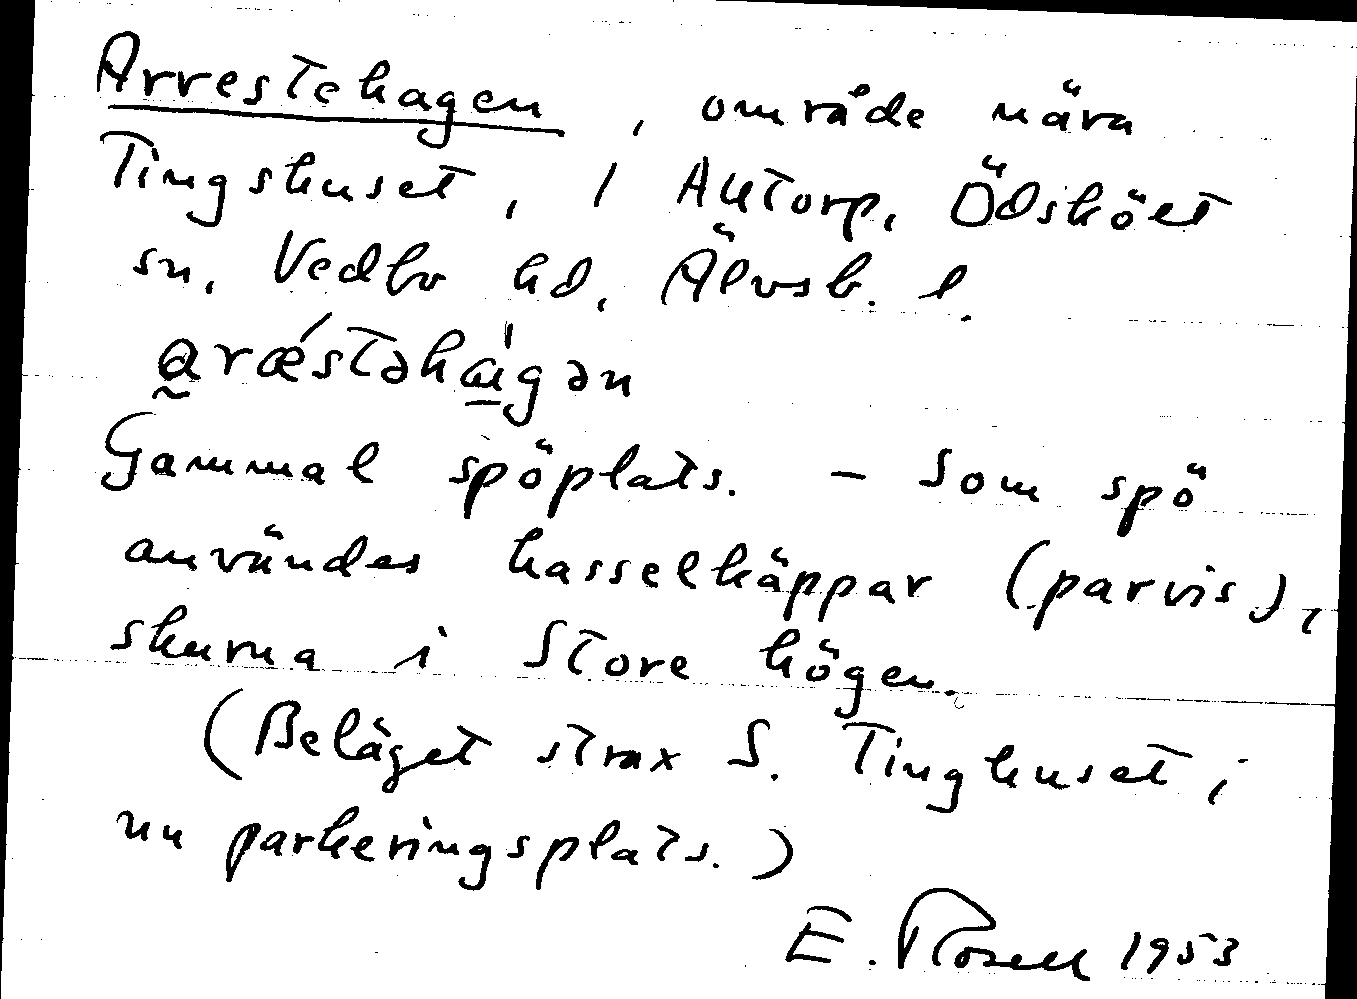 Arrestehagen, område nära
Tingshuset, 1 Autorp, Ödsköet
sn, Vedbo hd, Älvsb. l.
arǽstəhàgən
Gammal spöplats. – Som spö
användes hasselkäppar (parvis),
skurna i Store högen.
(Beläget strax S. Tinghuset;
nu parkeringsplats.)
E. Rosell 1953